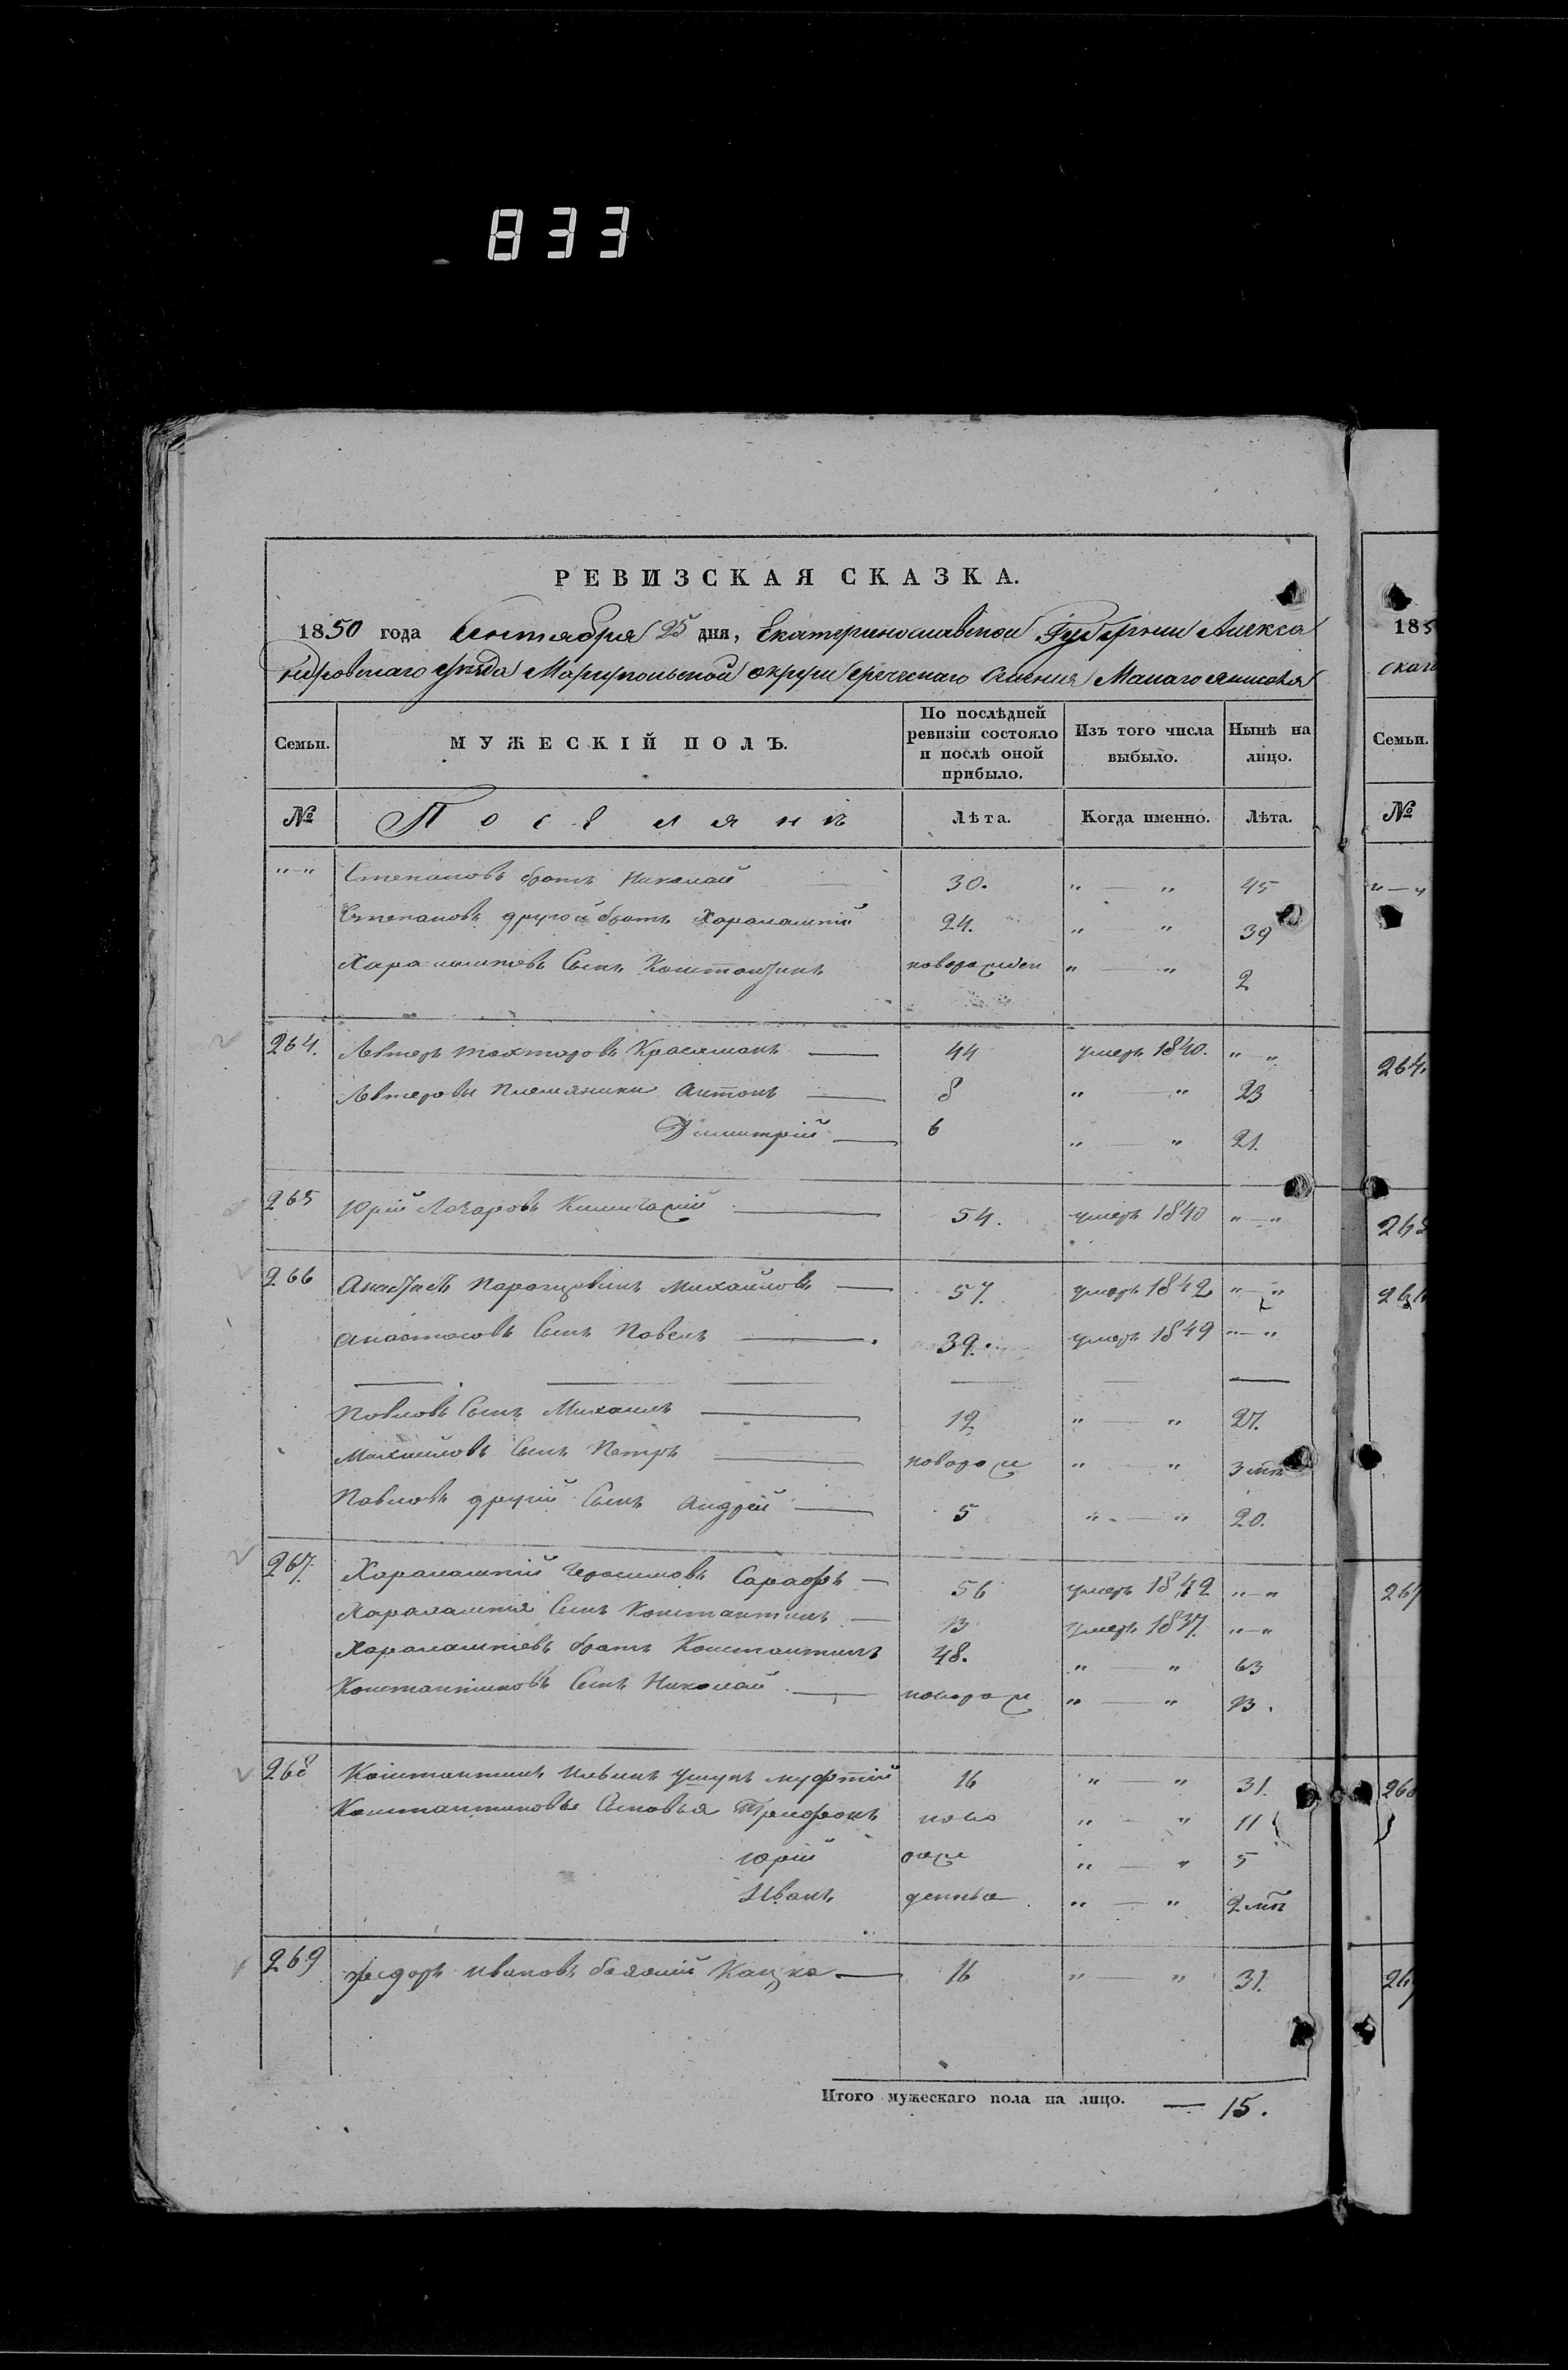 833
РЕВИЗСКАЯ СКАЗКА.
1850 года Сентября 25 дня, Екатеринославской Губернии Алекса
ндровскаго уѣзда Мариупольской округи греческаго селения Малаго Янисоля
Семьи. МУЖЕСКІЙ ПОЛЪ. По послѣдней ревизіи состояло и послѣ оной прибыло. Изъ того числа выбыло. Нынѣ на лицо.
№ Поселянъ Лѣта. Когда именно. Лѣта.
"—" Степановъ братъ Николай 30. "—" 45
Степановъ другой братъ Харалампій 24. "—" 39
Харалампіевъ сынъ Константинъ новорожден "—" 2
264. Левтеръ Тохтаровъ 44 умеръ 1840. "—"
Левтеровы племяники Антонъ — 8 "—" 23
Димитрій — 6 "—" 21.
265 Юрій Лазаровъ — 54. умеръ 1840 "—"
266 Анастасъ Михайловъ — 57. умеръ 1842 "—"
Анастасовъ сынъ Павелъ — 39. умеръ 1849 "—"
Павловъ сынъ Михаилъ — 12 "—" 27.
Михаиловъ сынъ Петръ — поворож "—" 3 мѣ
Павловъ другій сынъ Андрей — 5 "—" 20.
267. Харалампій Герасимовъ Сарафъ — 56 умеръ 1842 "—"
Харалампія сынъ Константинъ — 13 умеръ 1837. "—"
Харалампіевъ братъ Константинъ 48. "—" 63
Константиновъ сынъ Николай — новорож "—" 13.
268 Константинъ Ильинъ муфтій 16 "—" 31.
Константиновы сыновья Трифонъ ново "—" 11
Юрій рож "—" 5
Иванъ денные "—" 2 мѣ
269 Федоръ Ивановъ — 16 "—" 31.
Итого мужескаго пола на лицо. — 15.
185
скаго
Семьи.
№
"—"
264.
265
266
267
268
269